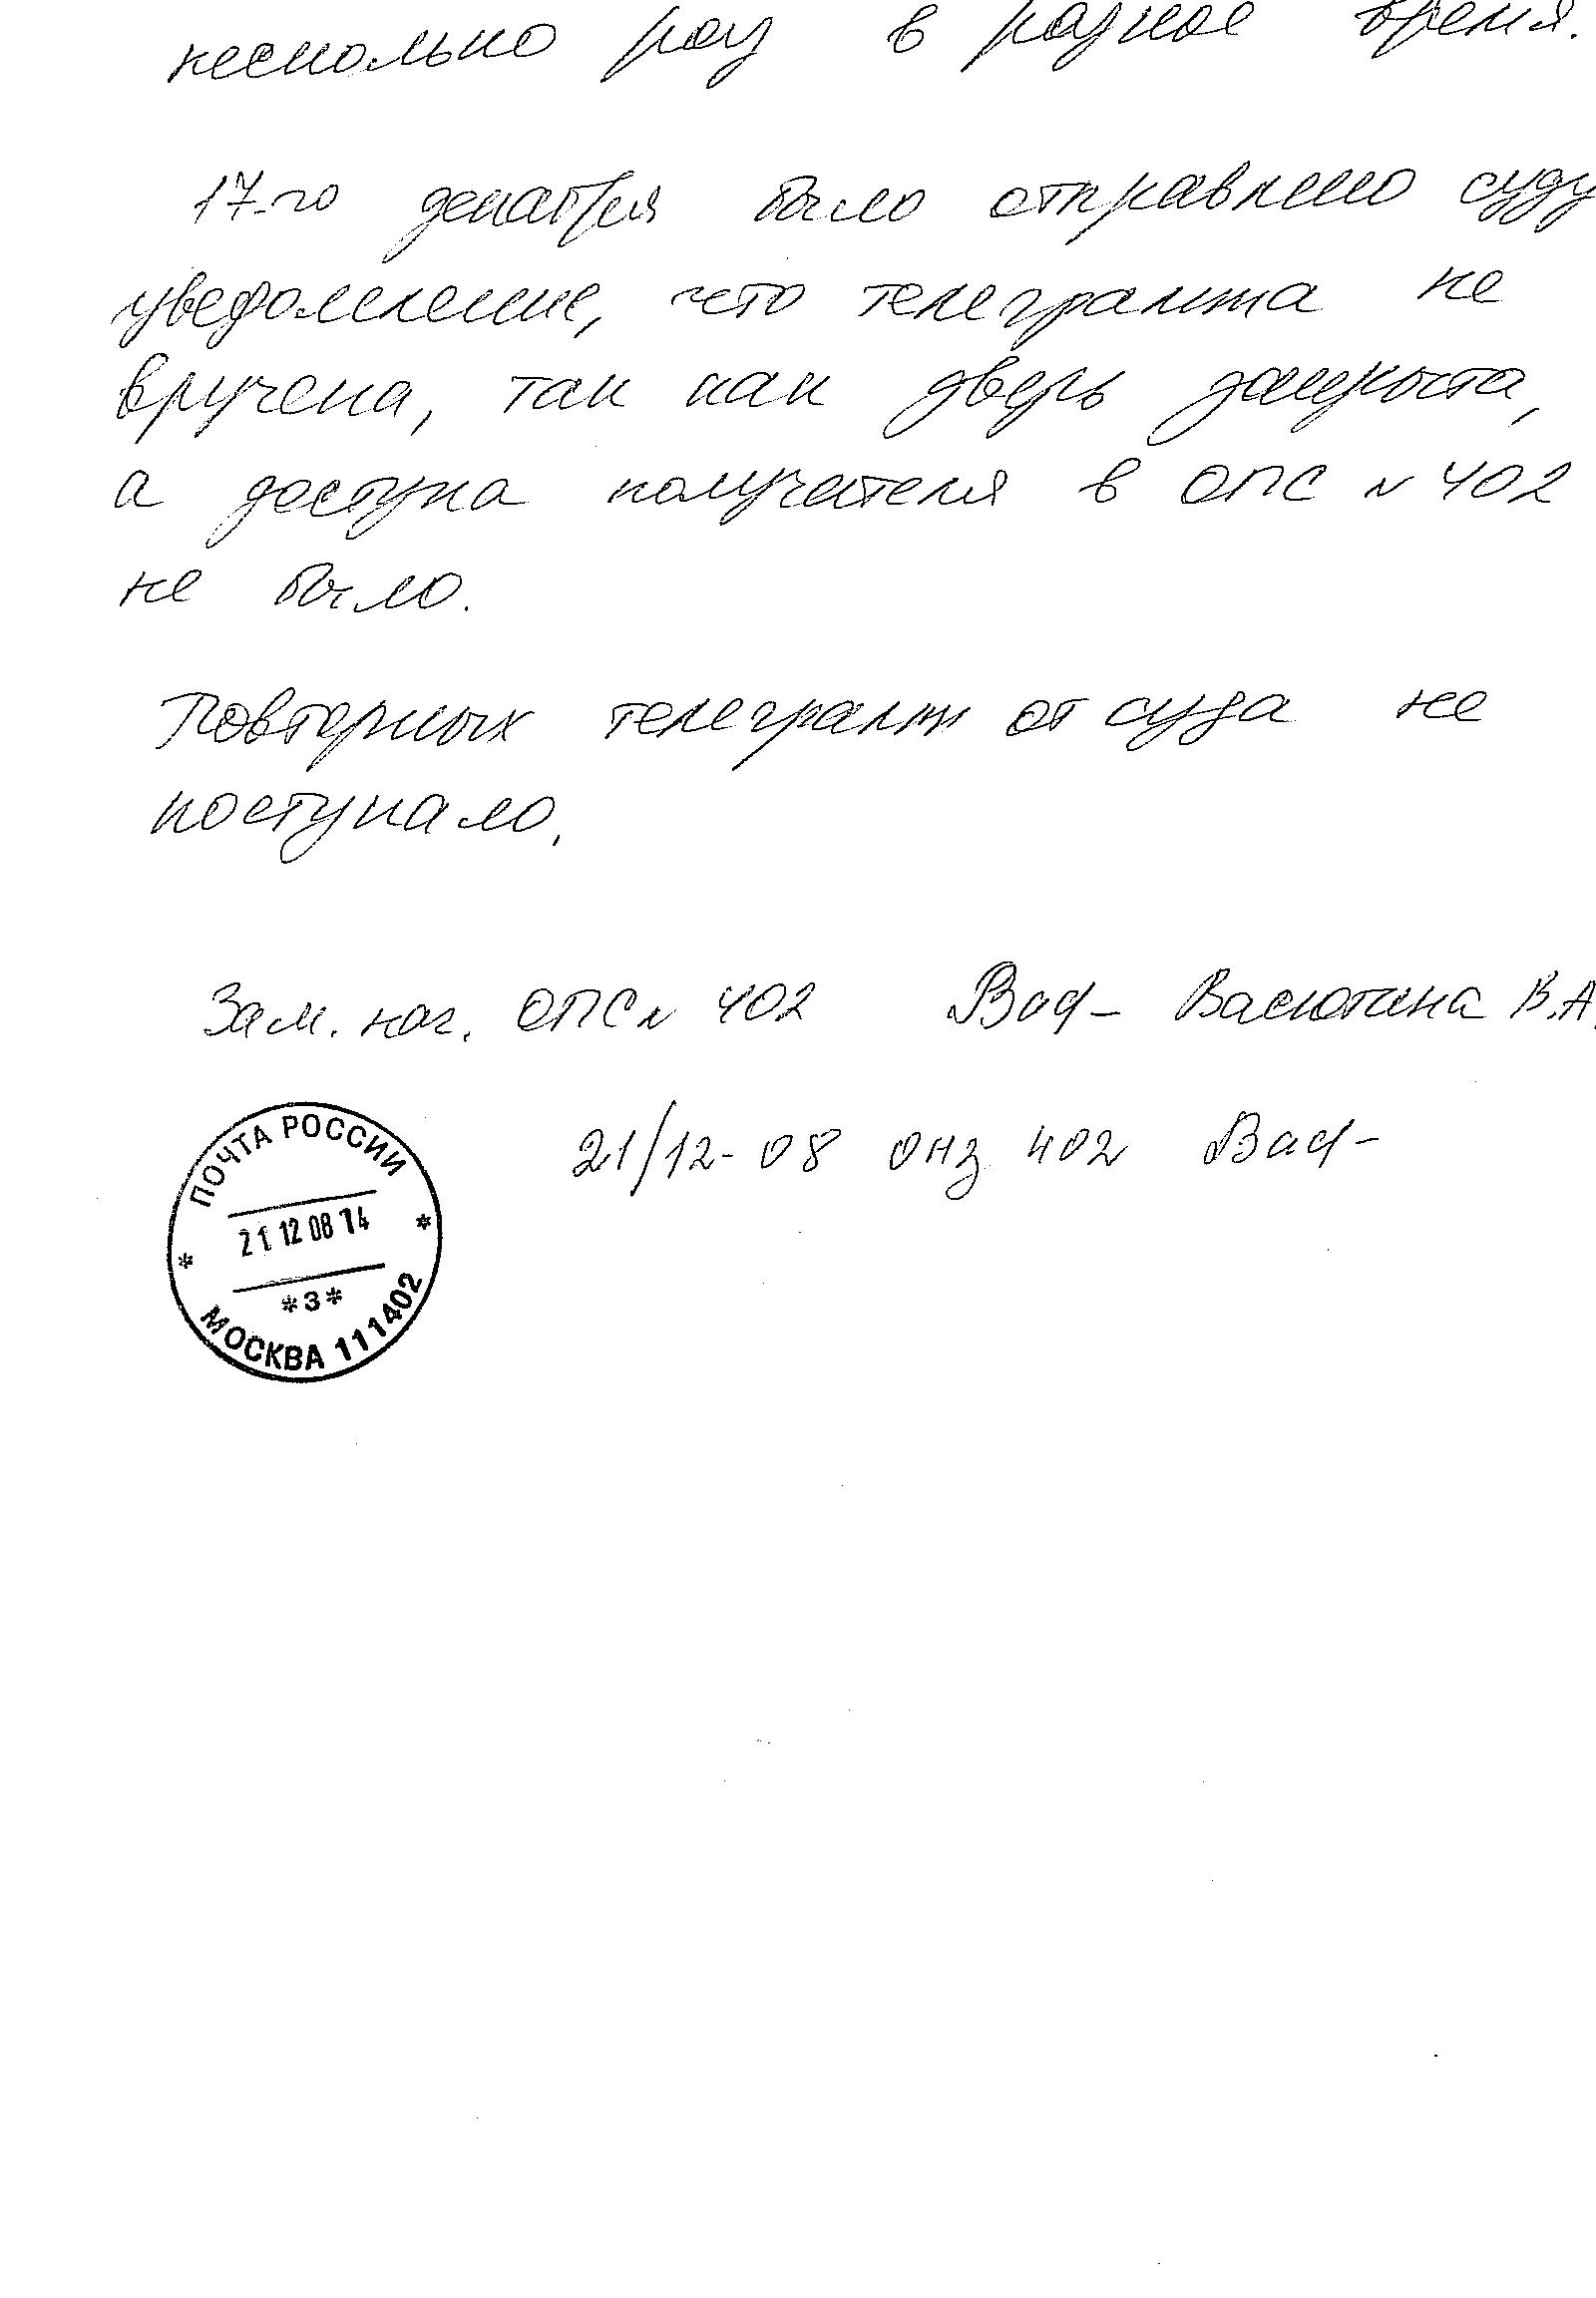 несколько раз в разное время.
17-го декабря было отправлено суду
уведомление, что телеграмма не
вручена, так как дверь закрыта,
а доступа получателя в ОПС N 402
не было.
Повторных телеграмм от суда не
поступало.
Зам. нач. ОПС N 402 Васютина В.А.
21/12-08 402
ПОЧТА РОССИИ
21 12 08 14
*3*
МОСКВА 111402